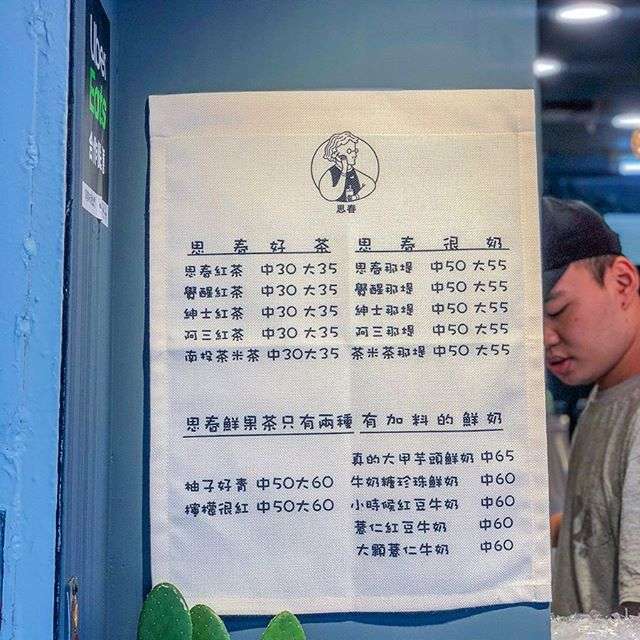 Uber
Eats
思春
思春好茶
思春紅茶 中30 大35
覺醒紅茶 中30 大35
紳士紅茶 中30 大35
阿三紅茶 中30 大35
南投茶米茶 中30大35
思春很奶
思春那堤 中50 大55
覺醒那堤 中50 大55
紳士那堤 中50 大55
阿三那堤 中50 大55
茶米茶那堤 中50 大55
思春鮮果茶只有兩種
柚子好青 中50大60
檸檬很紅 中50大60
有加料的鮮奶
真的大甲芋頭鮮奶 中65
牛奶糖珍珠鮮奶 中60
小時候紅豆牛奶 中60
薏仁紅豆牛奶 中60
大顆薏仁牛奶 中60